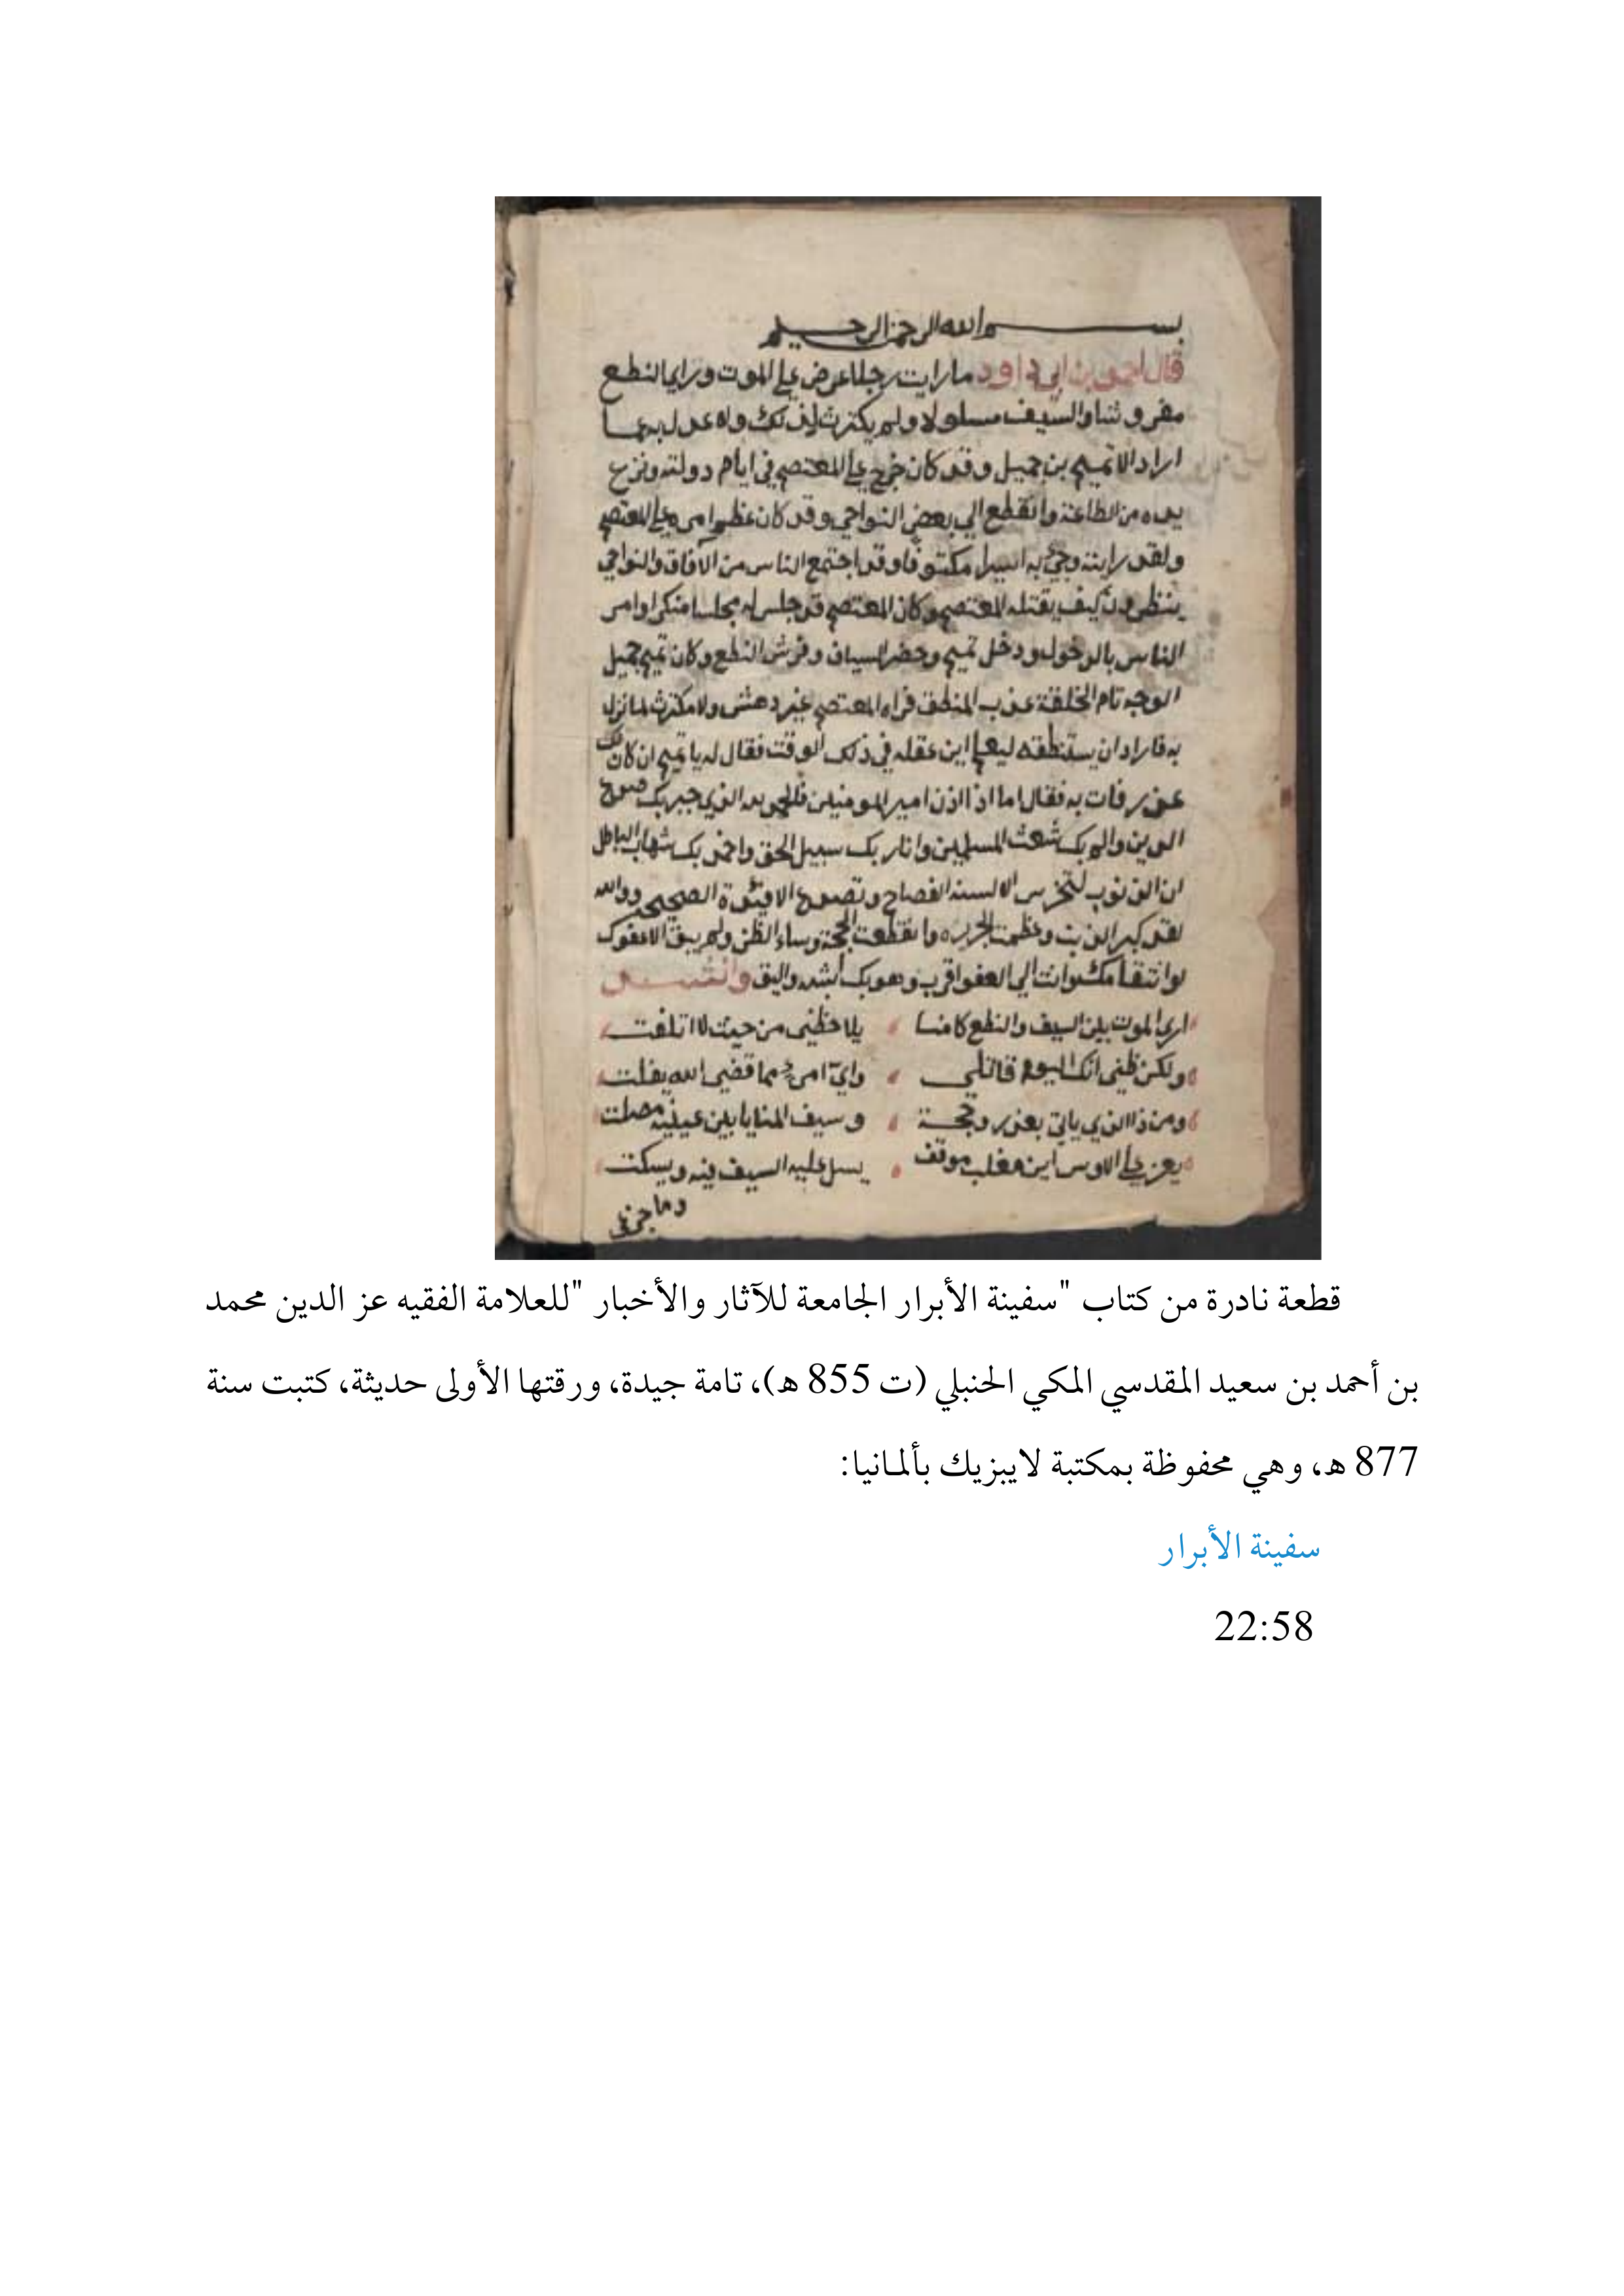 بسم الله الرحمن الرحيم
قال احمد بن ابي داود ما رايت رجلا عرض علي الموت وراي النطع
مفروشا والسيف مسلولا ولم يكترث لذلك ولا عدل به عما
اراد الا تميم بن جميل وقد كان خرج علي المعتصم في ايام دولته ونزع
يده من الطاعة وانقطع الي بعض النواحي وقد كان عظم امره علي المعتصم
ولقد رايته وجيء به اسيرا مكتوفا وقد اجتمع الناس من الآفاق والنواحي
ينظرون كيف يقتله المعتصم وكان المعتصم قد جلس له مجلسا منكرا وامر
الناس بالدخول ودخل تميم وحضر السياف وفرش النطع وكان تميم جميل
الوجه تام الخلقة عذب المنطق فراه المعتصم غير دهش ولا مكترث لما نزل
به فاراد ان يستنطقه ليعلم اين عقله في ذلك الوقت فقال له يا تميم ان كان لك
عذر فات به فقال اما اذا اذن امير المومنين فالحمد لله الذي جبر بك صدع
الدين ولم بك شعث المسلمين وانار بك سبيل الحق واخمد بك شهاب الباطل
ان الذنوب لتخرس الالسنه الفصاح وتصدع الافئدة الصحيحه ووالله
لقد كبر الذنب وعظمت الجريره وانقطعت الحجة وساء الظن ولم يبق الا عفوك
او انتقامك وانت الي العفو اقرب وهو بك اشبه واليق وانشد
اري الموت بين السيف والنطع كامنا يلاحظني من حيث لا اتلفت
ولكن ظني انك اليوم قاتلي واي امرء مما قضي الله يفلت
ومن ذا الذي ياتي بعذر وحجة وسيف المنايا بين عينيه مصلت
يعز علي الاوس ابن مغلب موقف يسل عليه السيف فيه ويسكت
وما جزعي
قطعة نادرة من كتاب "سفينة الأبرار الجامعة للآثار والأخبار "للعلامة الفقيه عز الدين محمد
بن أحمد بن سعيد المقدسي المكي الحنبلي (ت 855 هـ)، تامة جيدة، ورقتها الأولى حديثة، كتبت سنة
877 هـ، وهي محفوظة بمكتبة لايبزيك بألمانيا:
سفينة الأبرار
22:58